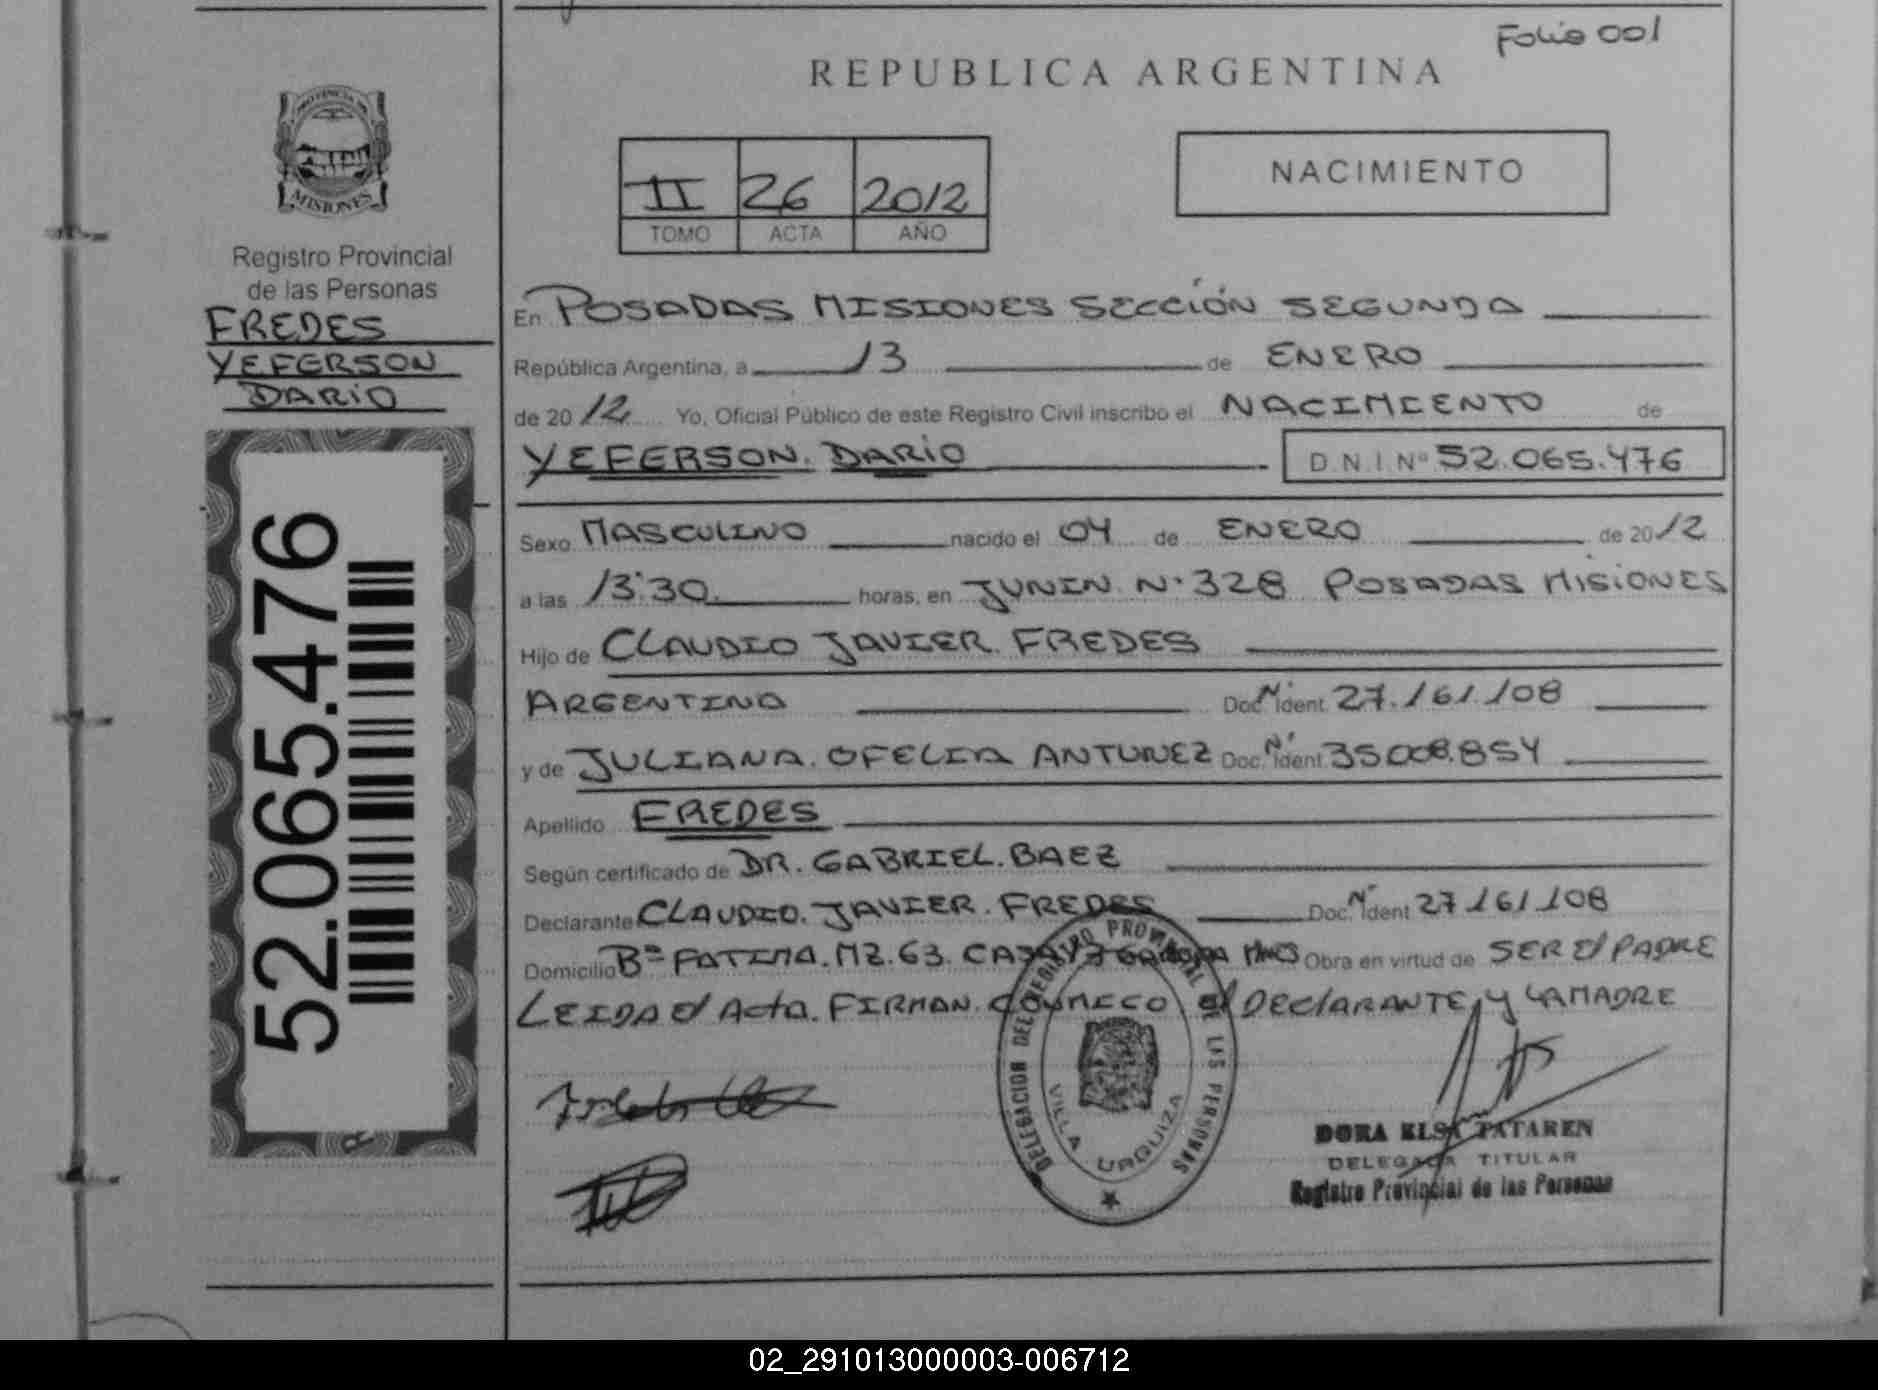 Folio 001
REPUBLICA ARGENTINA
PROVINCIA DE
MISIONES
Registro Provincial
de las Personas
FREDES
YEFERSON
DARIO
52.065.476
II 26 2012
TOMO ACTA AÑO
NACIMIENTO
En POSADAS MISIONES SECCIÓN SEGUNDA
República Argentina, a 13 de ENERO
de 2012 Yo, Oficial Público de este Registro Civil inscribo el NACIMIENTO de
YEFERSON. DARIO D.N.I. Nº 52.065.476
Sexo MASCULINO nacido el 04 de ENERO de 2012
a las 13:30. horas, en JUNIN. N° 328 POSADAS MISIONES
Hijo de CLAUDIO JAVIER. FREDES
ARGENTINO Doc. N° Ident. 27.161.108
y de JULIANA. OFELIA ANTUNEZ Doc. N° Ident. 35008.854
Apellido FREDES
Según certificado de DR. GABRIEL. BAEZ
Declarante CLAUDIO. JAVIER. FREDES Doc. N° Ident 27.161.108
Domicilio Bº FATIMA. MZ. 63. CASA GARUPA MNES Obra en virtud de SER El PADRE
LEIDA El Acta. FIRMAN. CONMIGO El DEClARANTE, y LA MADRE
DELEGACION DEL REGISTRO PROVINCIAL DE LAS PERSONAS
VILLA URQUIZA
DORA ELSA TATAREN
DELEGADA TITULAR
Registro Provincial de las Personas
02_291013000003-006712